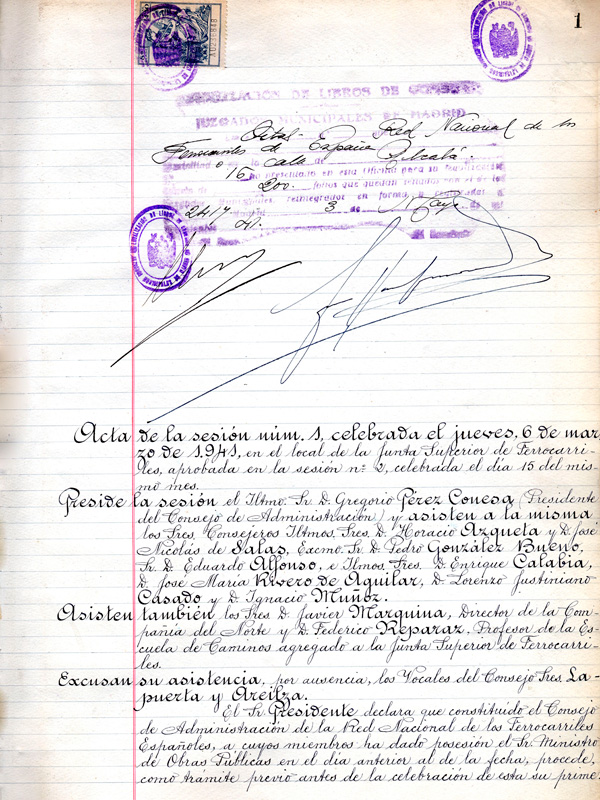 1
A0236848
LEGALIZACION DE LIBROS DE
JUZGADOS MUNICIPALES DE MADRID
Red Nacional de los
Ferrocarriles de España
calle de Alcalá
16 ha presentado en esta Oficina para su legalización
200 folios que quedan
3 de Mayo
2417
Acta de la sesión núm. 1, celebrada el jueves, 6 de mar-
zo de 1.941, en el local de la Junta Superior de Ferrocarri-
les, aprobada en la sesión nº 2, celebrada el día 15 del mis-
mo mes.
Preside la sesión el Iltmo. Sr. D. Gregorio Pérez Conesa (Presidente
del Consejo de Administración) y asisten a la misma
los Sres. Consejeros Iltmos. Sres. D. Horacio Azqueta y D. José
Nicolás de Salas, Excmo. Sr. D. Pedro González Bueno,
Sr. D. Eduardo Alfonso, e Ilmos. Sres. D. Enrique Calabia,
D. José María Rivero de Aguilar, D. Lorenzo Justiniano
Casado y D. Ignacio Muñoz.
Asisten también los Sres. D. Javier Marquina, Director de la Com-
pañía del Norte y D. Federico Reparaz, Profesor de la Es-
cuela de Caminos agregado a la Junta Superior de Ferrocarri-
les.
Excusan su asistencia, por ausencia, los Vocales del Consejo Sres. La-
puerta y Areilza.
El Sr. Presidente declara que constituido el Consejo
de Administración de la Red Nacional de los Ferrocarriles
Españoles, a cuyos miembros ha dado posesión el Sr. Ministro
de Obras Públicas en el día anterior al de la fecha, procede,
como trámite previo antes de la celebración de esta su prime-